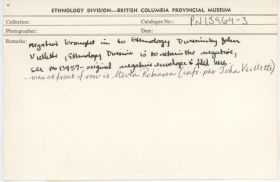 ETHNOLOGY DIVISION—BRITISH COLUMBIA PROVINCIAL MUSEUM
Collection: Catalogue No.: PN13964-3
Photographer: Date:
Remarks:
Negative brought in to Ethnology Division by John
Veillette, Ethnology Division is to retain the negative,
see PN 13957 - original negative envelope is filed here.
- man at front of row is Martin Robinson (info. per John Veillette)